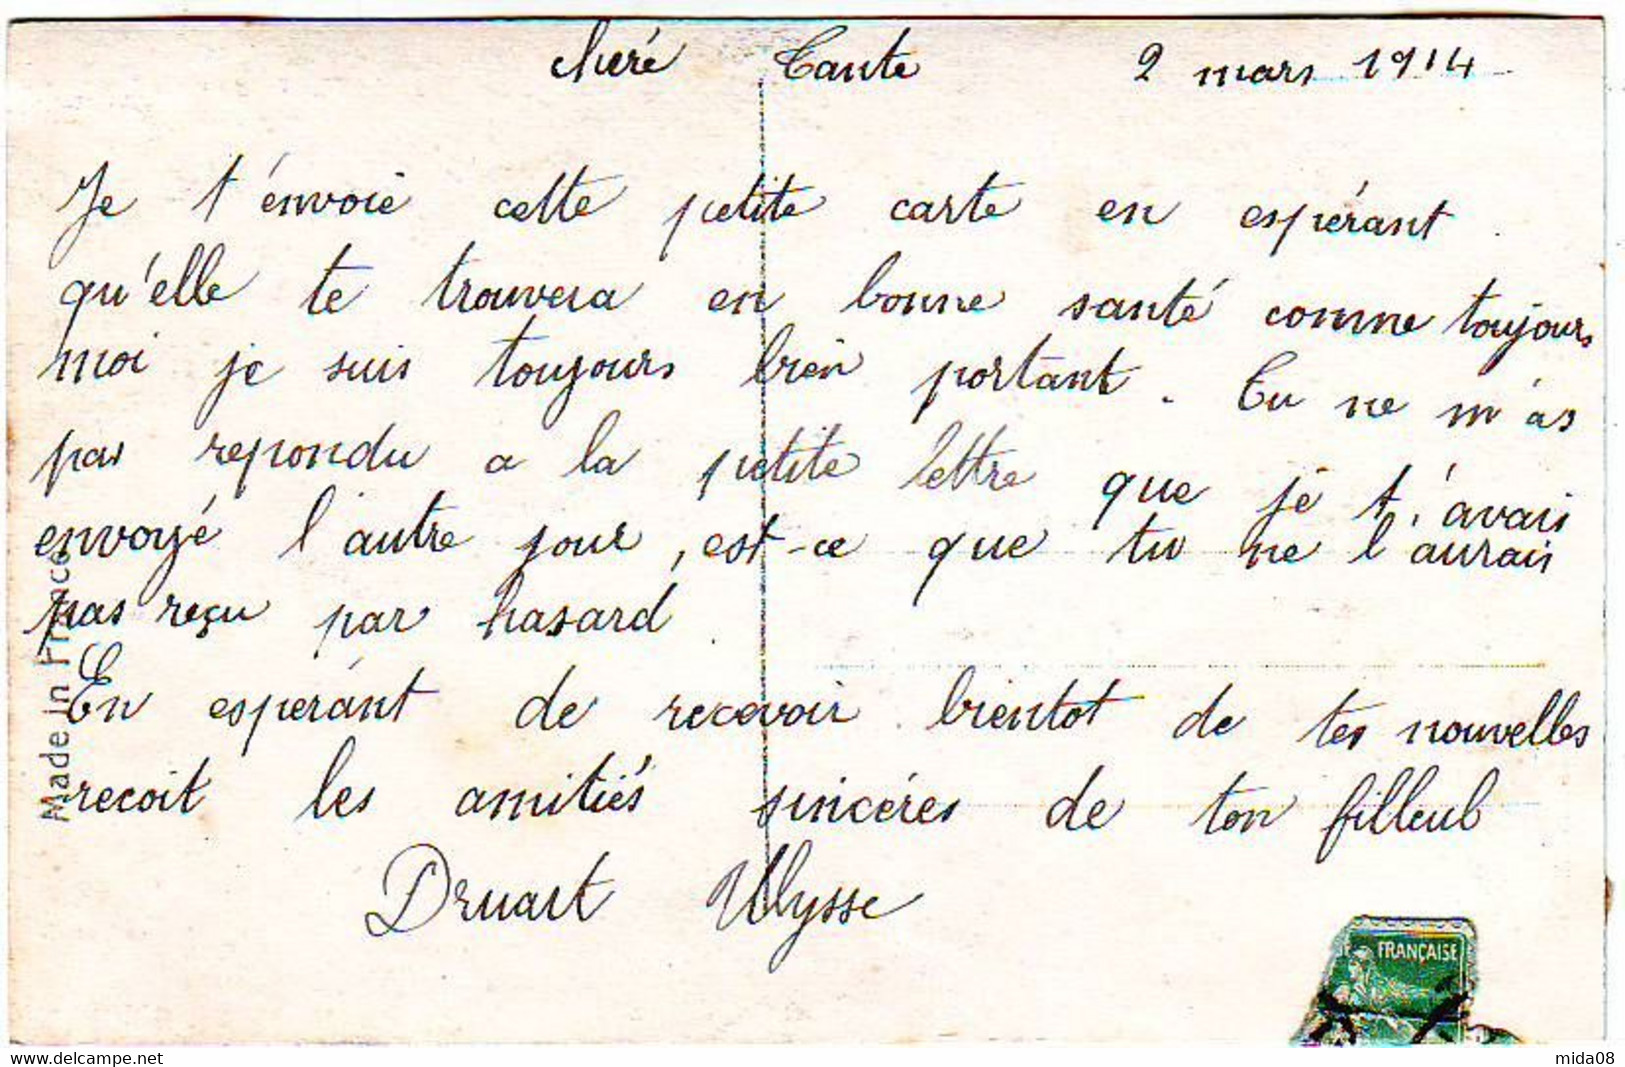 cheré Tante 2 mars 1914
Je t'envoie cette petite carte en espérant
qu'elle te trouvera en bonne santé comme toujours
moi je suis toujours bien portant. Tu ne m'as
pas repondu a la petite lettre que je t'avais
envoyé l'autre jour, est-ce que tu ne l'aurais
pas reçu par hasard.
En esperant de recevoir bientot de tes nouvelles
recoit les amitiés sincéres de ton filleul
Druart Ulysse
Made in France
FRANÇAISE
www.delcampe.net
mida08